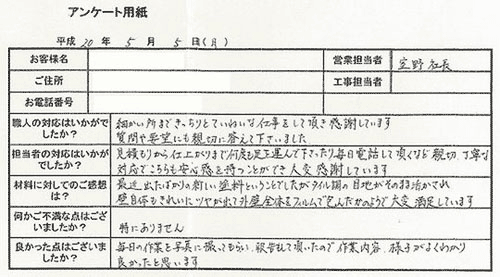 アンケート用紙
平成 20 年 5 月 5 日(月)
お客様名
営業担当者 宜野社長
ご住所
工事担当者
お電話番号
職人の対応はいかがでしたか?
細かい所まできっちりとていねいな仕事をして頂き感謝しています
質問や要望にも親切に答えて下さいました
担当者の対応はいかがでしたか?
見積もりから仕上がりまで何度も足を運んで下さったり毎日電話して頂くなど親切、丁寧な
対応でこちらも安心感を持つことができ大変感謝しています
材料に対してのご感想は?
最近出たばかりの新しい塗料ということでしたがタイル調の目地がそのまま活かされ
壁自体もきれいにツヤが出て外壁全体をフィルムで包んだかのようで大変満足しています
何かご不満な点はございましたか?
特にありません
良かった点はございましたか?
毎日の作業を写真に撮ってもらい報告をして頂いたので作業内容、様子がよくわかり
良かったと思います